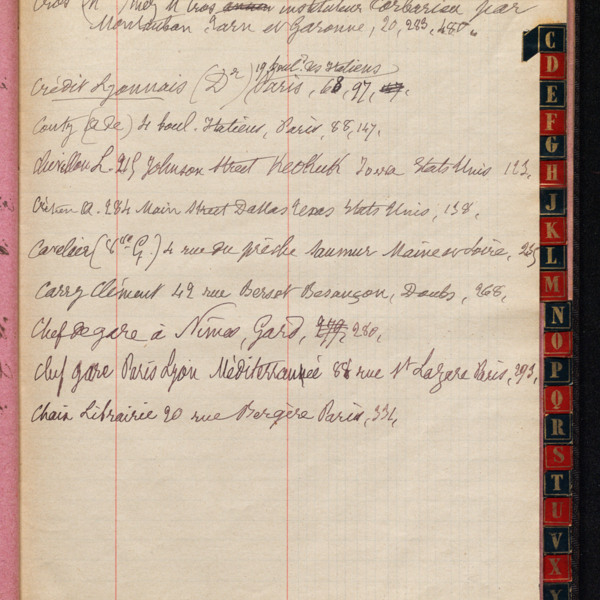 Cros (M.) chez M. Cros instituteur Corbarieu par
Montauban Tarn et Garonne, 20, 283, 480,
19 boul. des Italiens
Crédit Lyonnais (Dr) Paris, 68, 97,
Couty (A de) 4 boul. Italiens, Paris, 88, 147,
Chevillon L. 215 Johnson Street Keokuk Iowa Etats Unis 123,
A. 284 Main Street Dallas Texas Etats Unis, 138,
Cavelier (Vve G.) 4 rue du prêche Saumur Maine et Loire, 235
Carry Clément 42 rue Bersot Besançon, Doubs, 268,
Chef de gare à Nîmes, Gard, 280,
chef gare Paris Lyon Méditerrannée 88 rue St Lazare Paris, 293,
Chaix Librairie 20 rue Bergère Paris, 334,
C
D
E
F
G
H
J
K
L
M
N
O
P
Q
R
S
T
U
V
X
Y